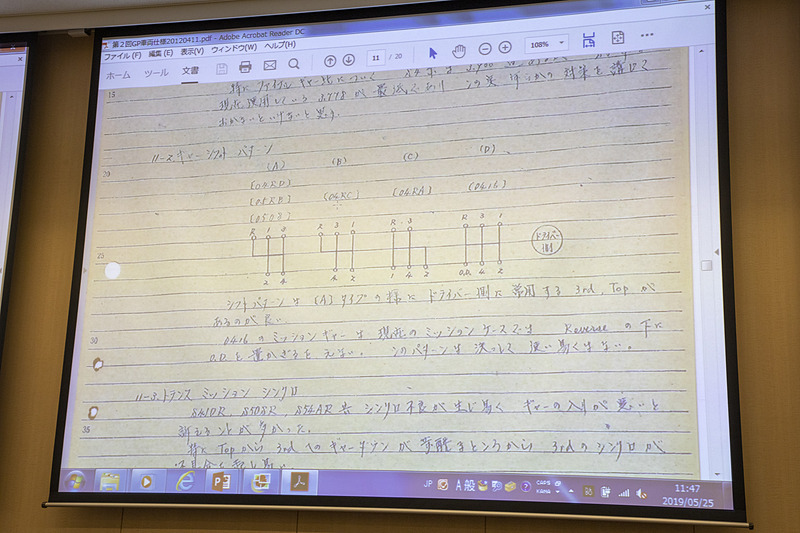 第2回GP車両仕様20120411.pdf - Adobe Acrobat Reader DC
ファイル(F) 編集(E) 表示(V) ウィンドウ(W) ヘルプ(H)
ホーム ツール 文書 11 / 20 108%
15
現在使用している 3.778 が最低であり この実 何らかの対策を講じて
おかないといけないと思う.
11-2. ギャーシフト パターン
20
(A) (B) (C) (D)
[04RB] [04RC] [04RA] [0416]
[05RB]
[050B]
R 1 3 2 3 1 R 3 R 3 1
2 4 4 2 1 4 2 O.D. 4 2
ドライバー側
25
シフトパターンは [A] タイプの様に ドライバー側に常用する 3rd, Top が
あるのが良い.
0416 のミッションギャーは 現在のミッションケースでは Reverse の下に
30
O.D. と置かざるをえない. このパターンは 決して 使い易くはない.
11-3. トランス ミッション シンクロ
S41DR, S50SR, S54AR 共 シンクロ不良が生じ易く ギャーの入りが悪いと
35
訴えることが多かった.
特に Top から 3rd へのギャーダウンが 頻繁なところから 3rd のシンクロが
JP A 般 CAPS KANA 11:47
2019/05/25